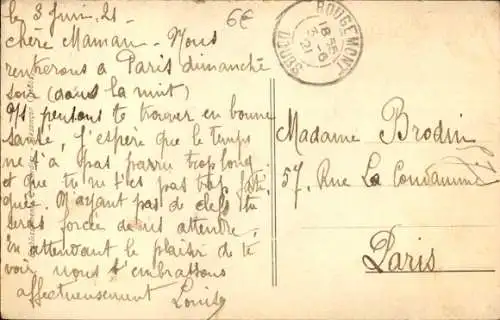 le 3 Juin 21-
6€
chère Maman - Nous
rentrerons à Paris dimanche
soir (dans la nuit)
pensons te trouver en bonne
santé, j'espère que le temps
ne t'a pas parru trop long
et que tu ne t'es pas trop fati
guée. N'ayant pas de clefs tu
seras forcée de nous attendre.
En attendant le plaisir de te
voir nous t'embrassons
affectueusement Louis
ROUGEMONT
DOUBS
18 35
3-6
21
Madame Brodin
57, Rue La Condamine
Paris